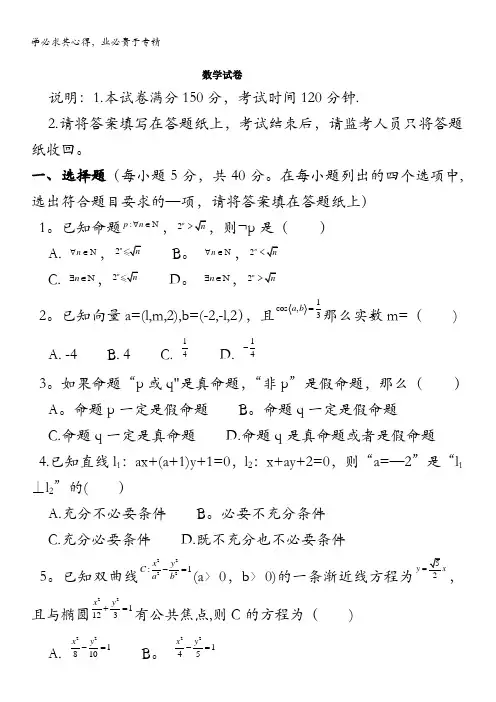 学必求其心得，业必贵于专精
数学试卷
说明：1.本试卷满分150分，考试时间120分钟.
2.请将答案填写在答题纸上，考试结束后，请监考人员只将答题
纸收回。
一、选择题（每小题5分，共40分。在每小题列出的四个选项中，
选出符合题目要求的—项，请将答案填在答题纸上）
1。已知命题p:∀n∈N，2ⁿ>√n，则¬p是（ ）
A. ∀n∈N，2ⁿ⩽√n B。 ∀n∈N，2ⁿ<√n
C. ∃n∈N，2ⁿ⩽√n D。 ∃n∈N，2ⁿ>√n
2。已知向量a=(l,m,2),b=(-2,-l,2)，且cos⟨a,b⟩=1/3那么实数m=（ )
A. -4 B. 4 C. 1/4 D. -1/4
3。如果命题“p或q"是真命题，“非p”是假命题，那么（ ）
A。命题p一定是假命题 B。命题q一定是假命题
C.命题q一定是真命题 D.命题q是真命题或者是假命题
4.已知直线l₁：ax+(a+1)y+1=0，l₂：x+ay+2=0，则“a=—2”是“l₁
⊥l₂”的( ）
A.充分不必要条件 B。必要不充分条件
C.充分必要条件 D.既不充分也不必要条件
5。已知双曲线C:x²/a²-y²/b²=1(a〉0，b〉0)的一条渐近线方程为y=√5/2 x，
且与椭圆x²/12+y²/3=1有公共焦点,则C的方程为（ )
A. x²/8-y²/10=1 B。 x²/4-y²/5=1